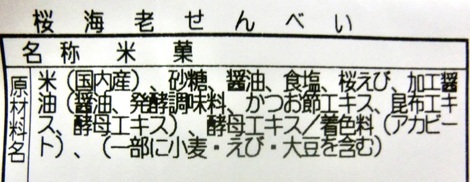 桜海老せんべい
名称 米菓
原材料名 米（国内産）、砂糖、醤油、食塩、桜えび、加工醤
油（醤油、発酵調味料、かつお節エキス、昆布エキ
ス、酵母エキス）、酵母エキス／着色料（アカビー
ト）、（一部に小麦・えび・大豆を含む）